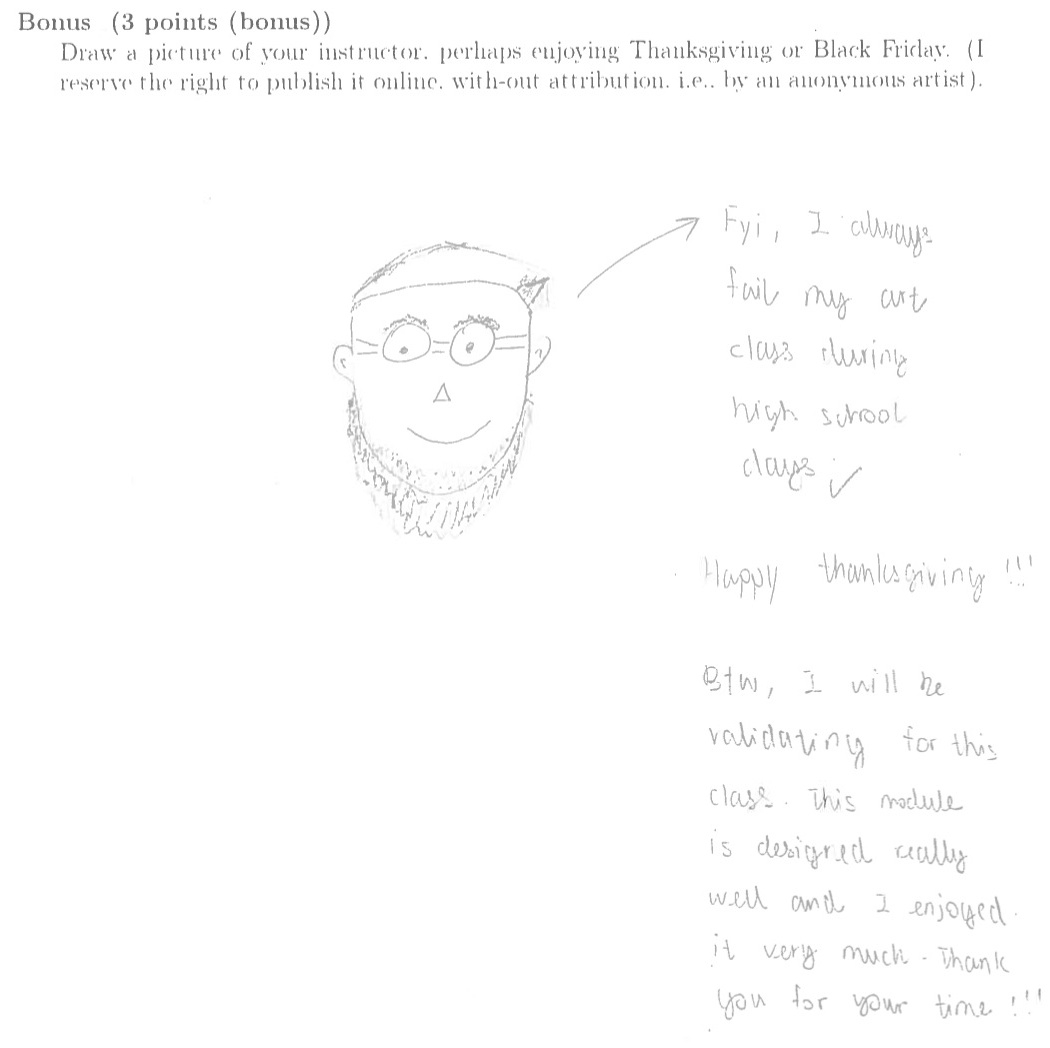 Bonus (3 points (bonus))
Draw a picture of your instructor, perhaps enjoying Thanksgiving or Black Friday. (I
reserve the right to publish it online, with-out attribution, i.e., by an anonymous artist).
Fyi, I always
fail my art
class during
high school
days
Happy thanksgiving !!!
Btw, I will be
validating for this
class. This module
is designed really
well and I enjoyed
it very much. Thank
you for your time !!!